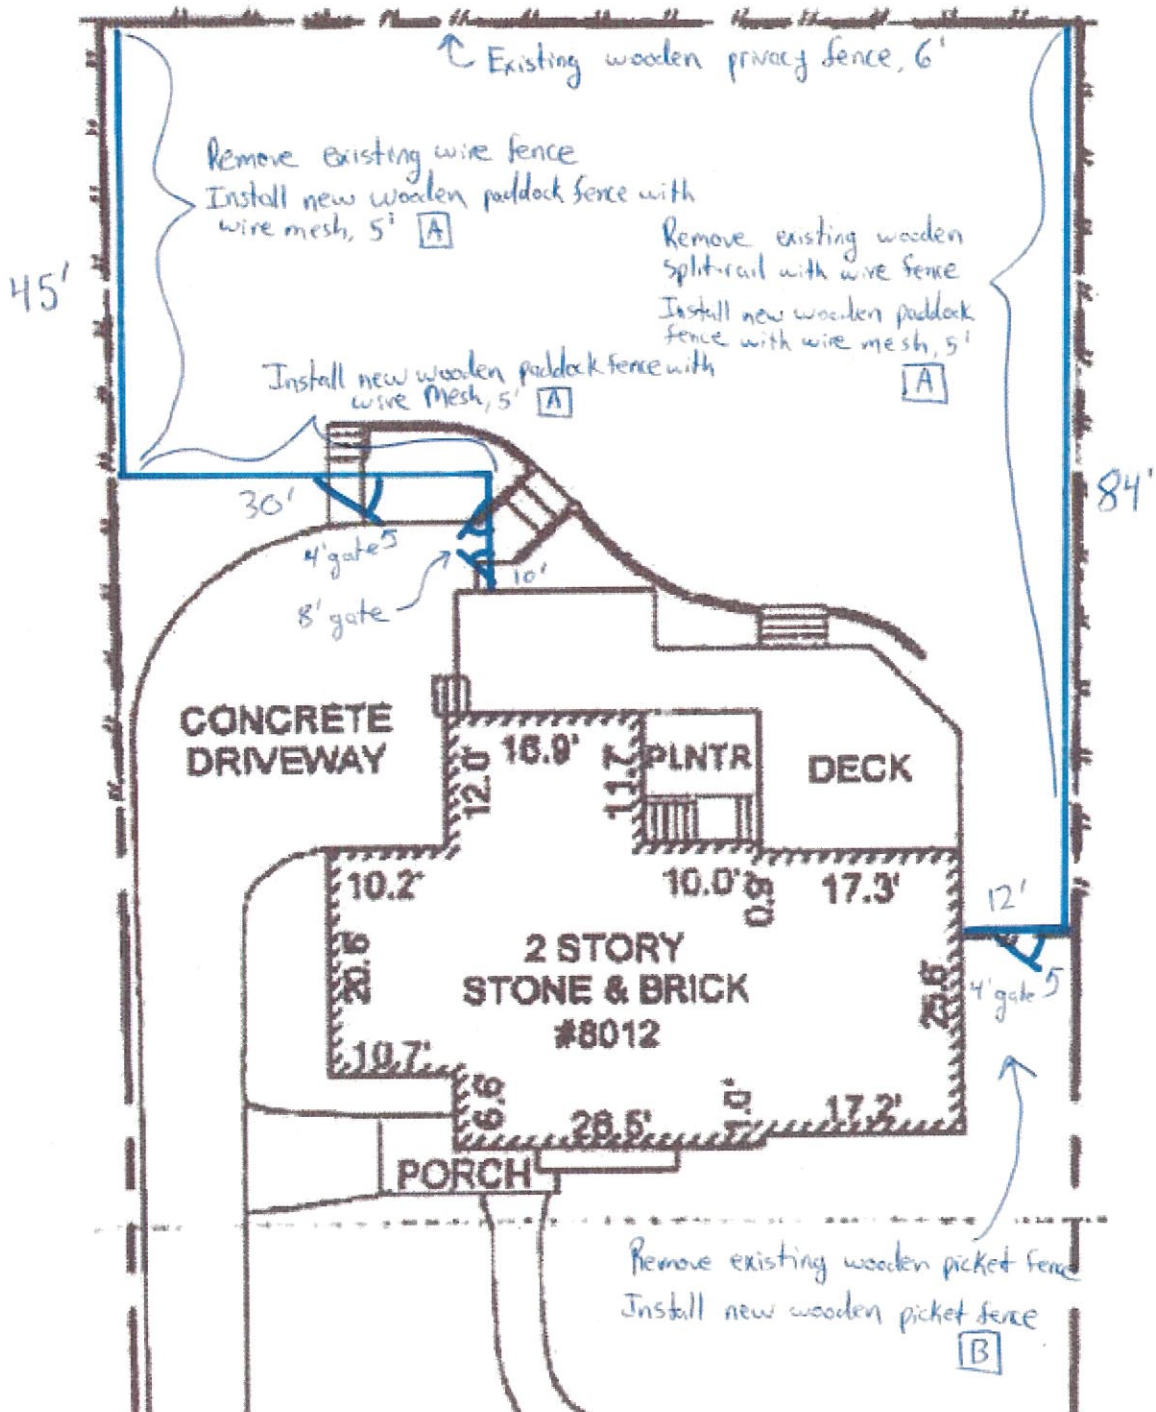 Existing wooden privacy fence, 6'
Remove existing wire fence
Install new wooden paddock fence with
wire mesh, 5' A
Remove existing wooden
split-rail with wire fence
Install new wooden paddock
fence with wire mesh, 5'
A
45'
Install new wooden paddock fence with
wire Mesh, 5' A
84'
30'
4' gate 5
10'
8' gate
CONCRETE
DRIVEWAY
16.9'
12.0'
11.7'
PLNTR
DECK
10.2'
10.0'
0.9'
17.3'
12'
2 STORY
STONE & BRICK
#8012
20.6'
25.6'
4' gate 5
10.7'
6.6'
26.5'
1.0'
17.2'
PORCH
Remove existing wooden picket fence
Install new wooden picket fence
B